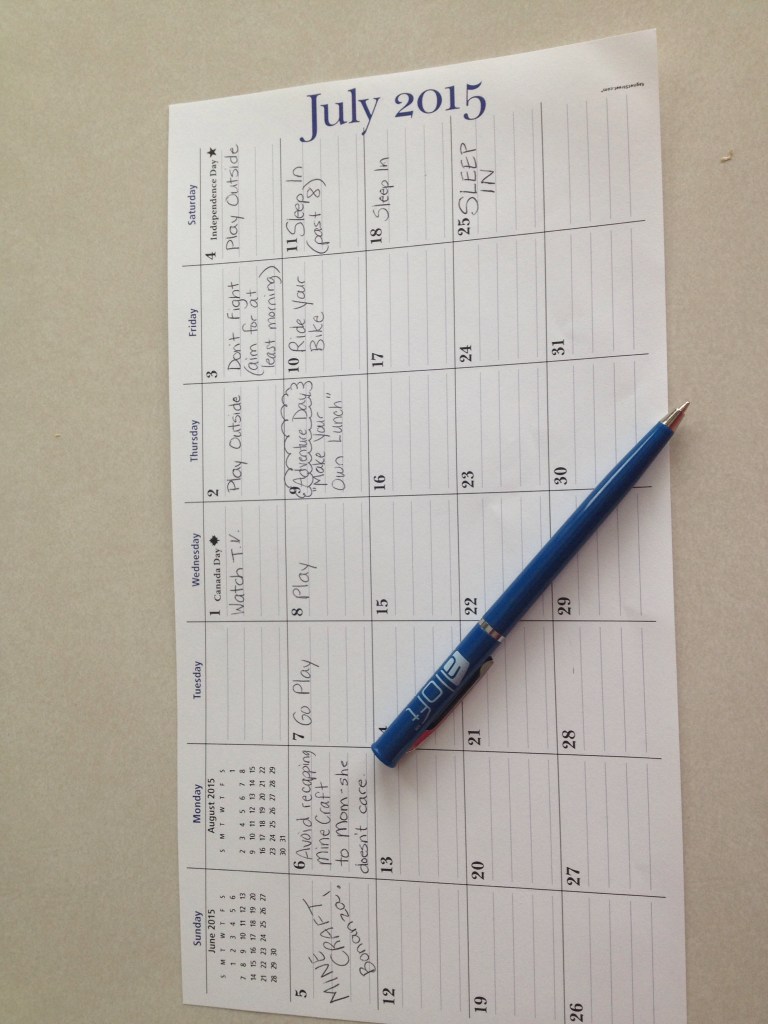 July 2015
Sunday
Monday
Tuesday
Wednesday
Thursday
Friday
Saturday
June 2015
S M T W T F S
1 2 3 4 5 6
7 8 9 10 11 12 13
14 15 16 17 18 19 20
21 22 23 24 25 26 27
28 29 30
August 2015
S M T W T F S
1
2 3 4 5 6 7 8
9 10 11 12 13 14 15
16 17 18 19 20 21 22
23 24 25 26 27 28 29
30 31
1 Canada Day
Watch T.V.
2
Play Outside
3
Don't Fight
(aim for at
least morning)
4 Independence Day
Play Outside
5
MINE
CRAFT,
Bonanza.
6 Avoid recapping
MineCraft
to mom-she
doesn't care
7 Go Play
8 Play
9 Adventure Day
"Make Your
Own Lunch"
10 Ride Your
Bike
11 Sleep In
(past 8)
12
13
15
16
17
18 Sleep In
19
20
21
22
23
24
25 SLEEP
IN
26
27
28
29
30
31
aloft